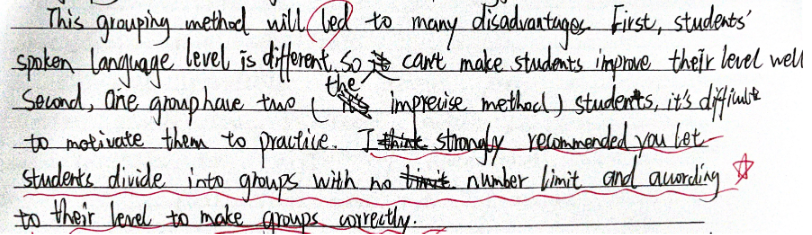 This grouping method will led to many disadvantages. First, students'
spoken language level is different. So can't make students improve their level well
Second, One group have two (the imprecise method) students, it's difficult
to motivate them to practice. I think strongly recommended you let
students divide into groups with no limit number limit and acuording
to their level to make groups correctly.